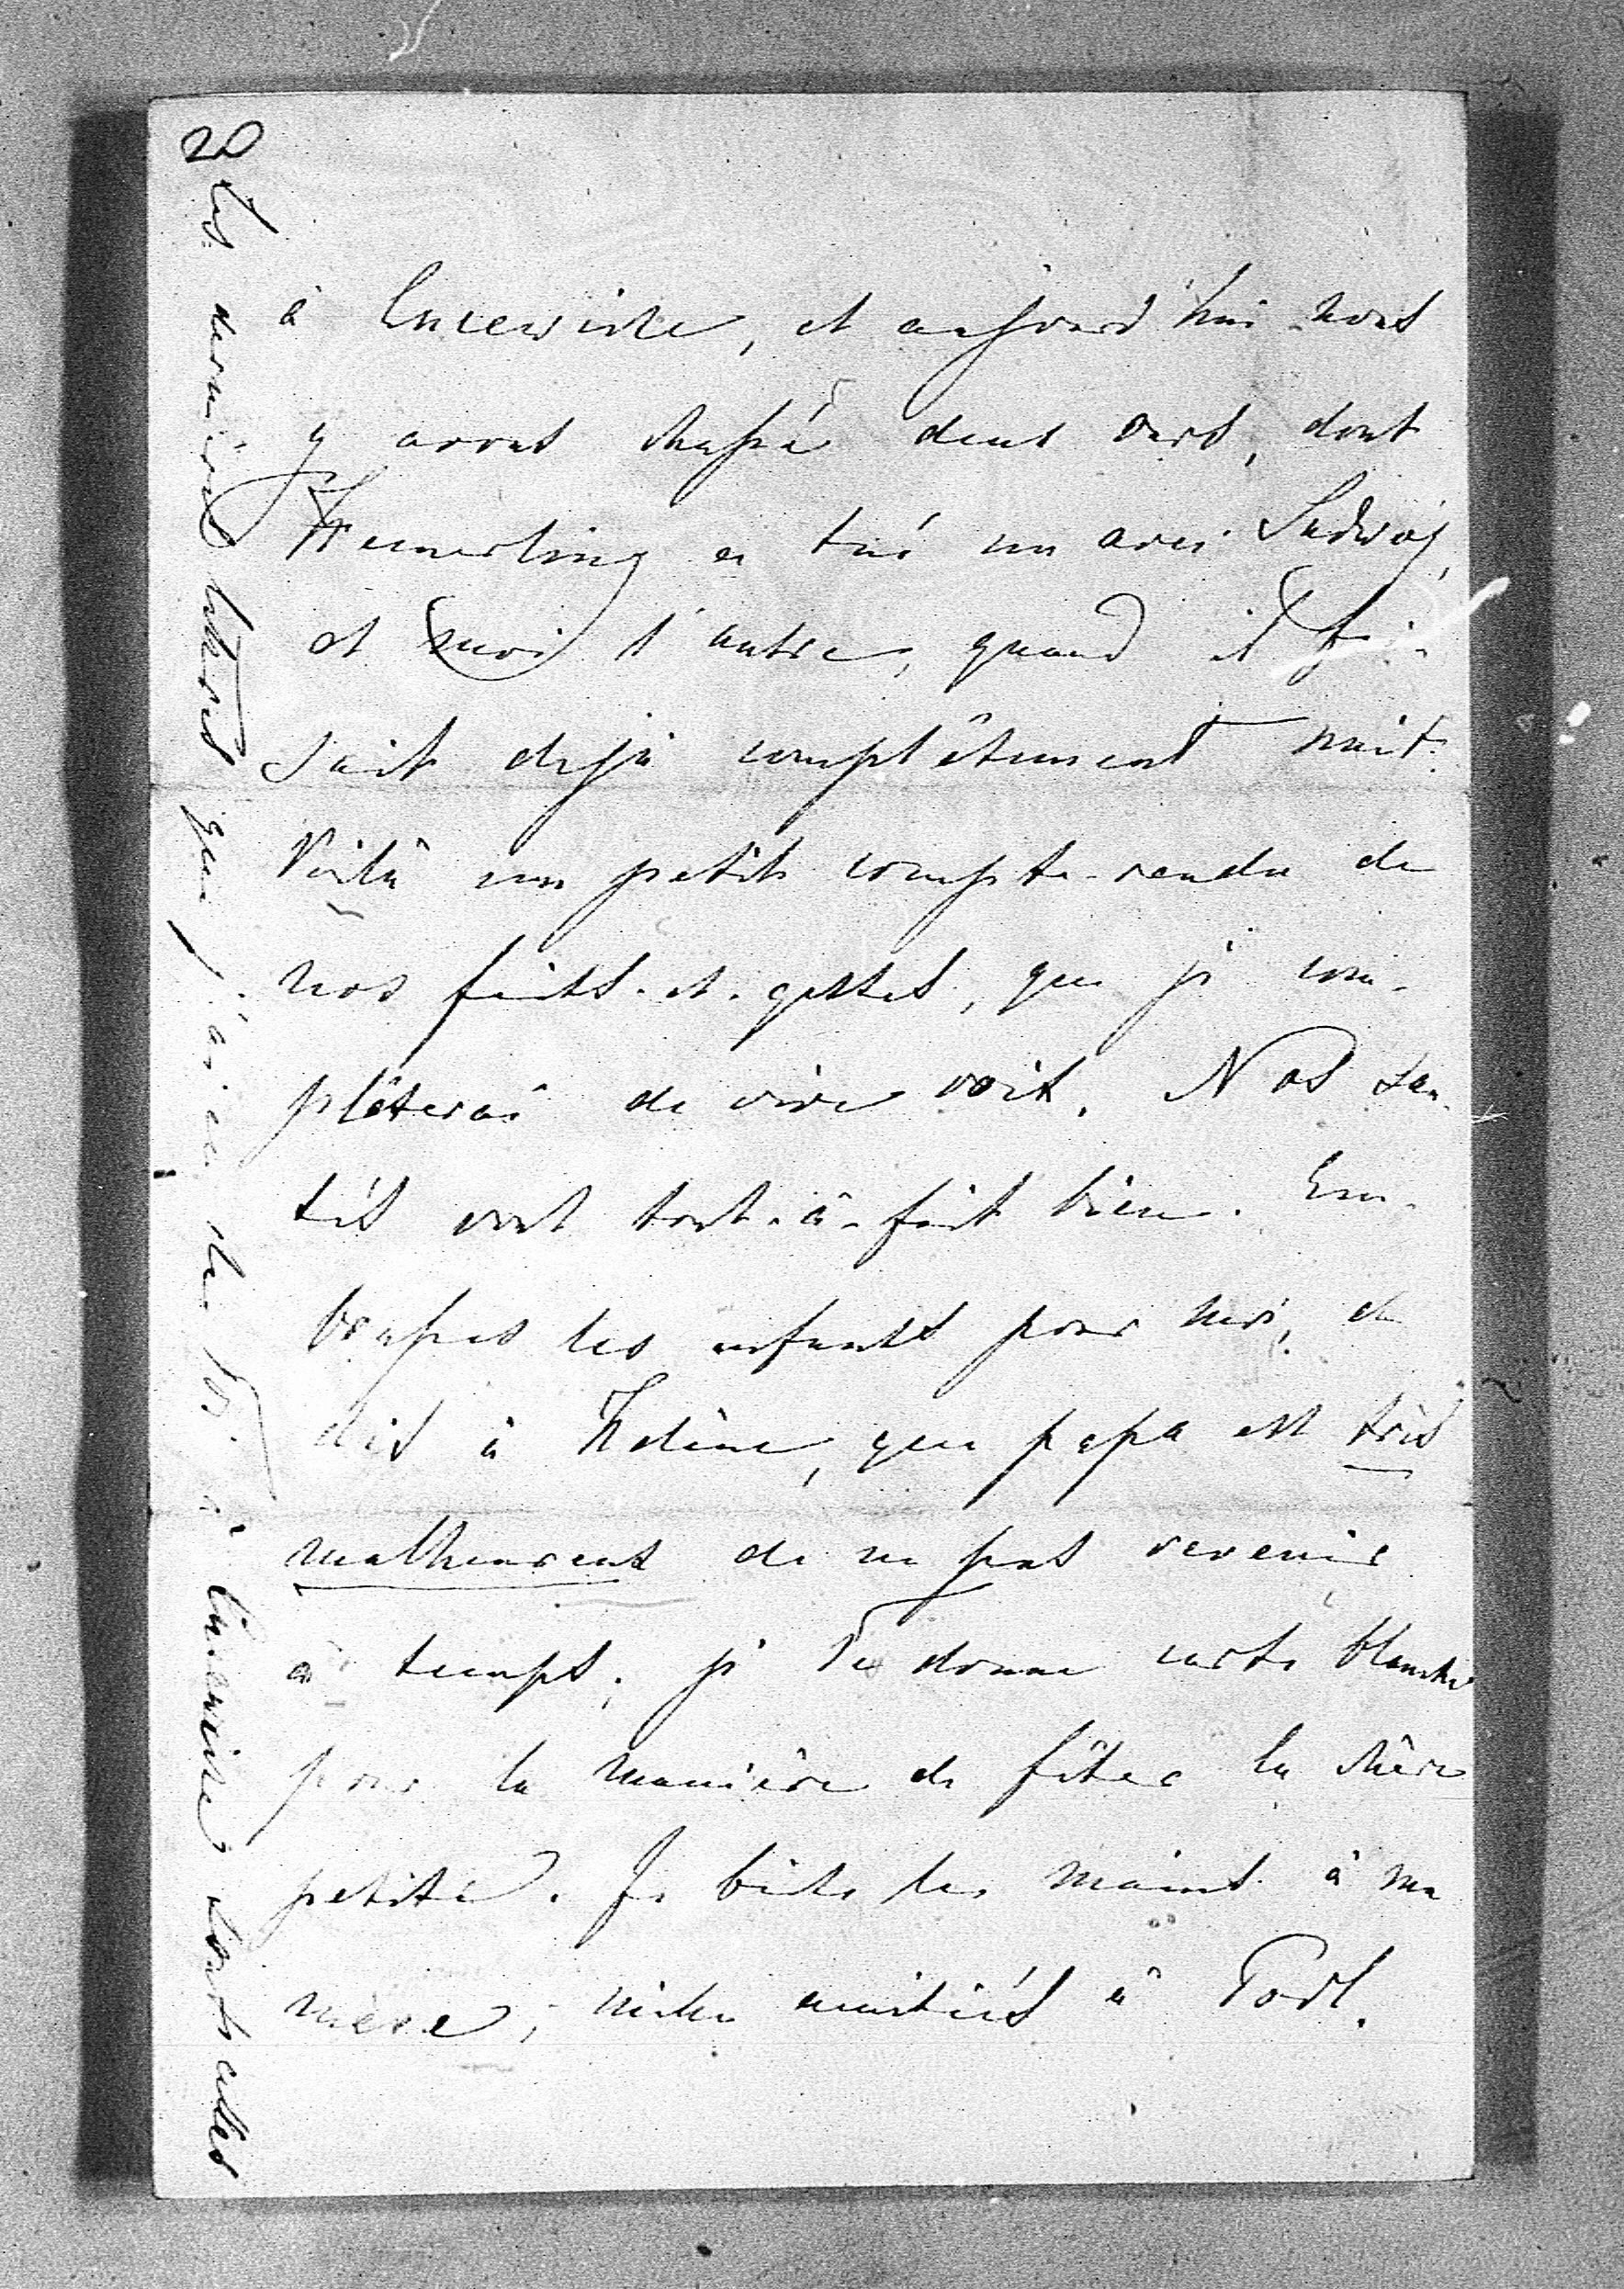 à Encewicze, et aujourd'hui nous
y avons chassé deux ours, dont
Hemerling a tué un avec Ludwig,
et moi l'autre, quand il fai-
sait déjà complêtement nuit.
Voilà un petit compte-rendu de
nos faits-et-gestes, que je com-
plêterai de vive voix. Nos san-
tés vont tout-à-fait bien. Em-
brasses les enfants pour moi, et
dis à Hélène, que papa est très
malheureux de ne pas revenir
à temps; je Te donne carte blanche
pour la manière de fêter la chère
petite. Je baise les mains à ma
mère; mille amitiés à
20
Les dernières lettres que j'ai de Toi à sont celles